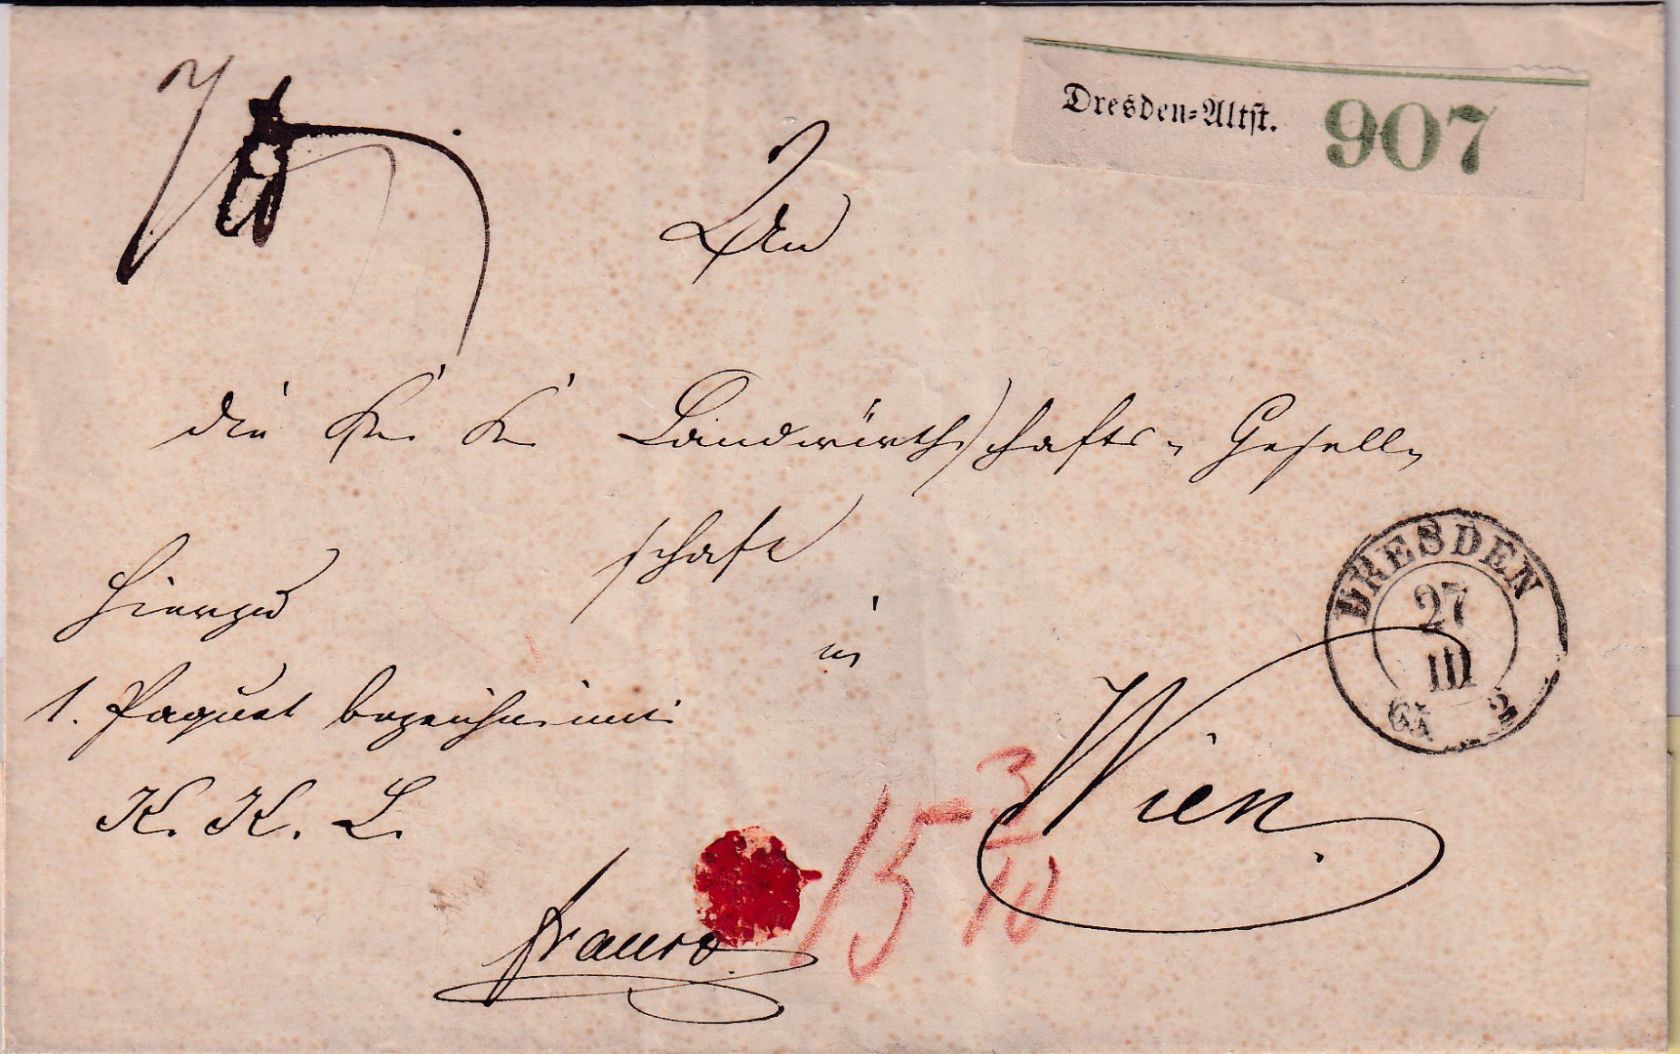 Dresden-Altst. 907
An
die K. K. Landwirthschafts-Gesell-
schaft
in
Wien.
hierzu
1. Paquet bezeichnet mit
K. K. L.
franco
15 3/10
DRESDEN
27
III
65 2